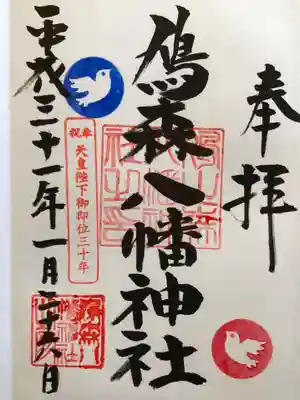 奉拝
鳩森八幡神社
奉祝 天皇陛下御即位三十年
平成三十一年一月二十六日